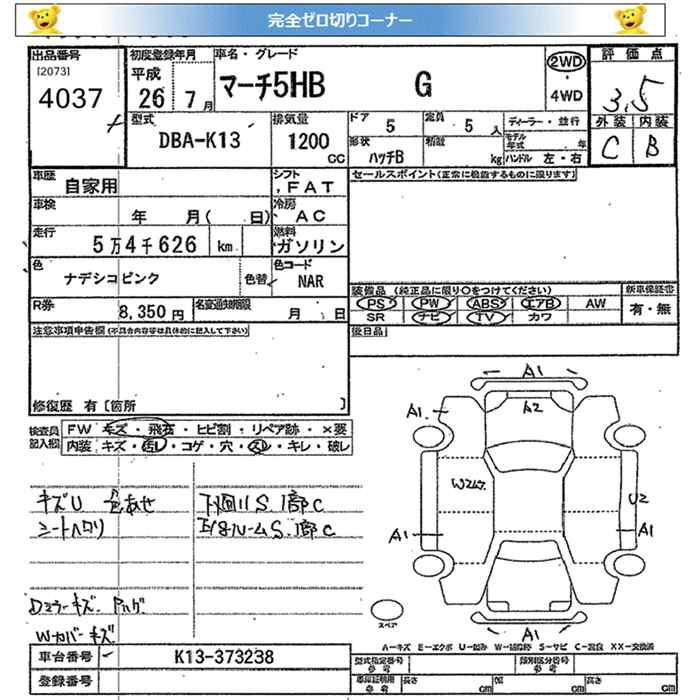 完全ゼロ切りコーナー
出品番号 初度登録年月 車名・グレード 評価点
[2073] 平成
4037 26 年 7 月 マーチ5HB G 2WD ・ 4WD 3.5
型式 排気量 ドア 5 定員 5 人 ディーラー・並行 外装 内装
DBA-K13 1200 CC 形状 ハッチB 積載 kg モデル年式 年 ハンドル 左・右 C B
車歴 自家用 シフト ,FAT セールスポイント(正常に機能するものに限ります)
車検 年 月( 日) 冷房 AC
走行 5万4千626 km 燃料 ガソリン
色 ナデシコピンク 色替 色コード NAR
装備品 (純正品に限り○をつけてください) 新車保証書
R券 8,350円 名変通知期限 月 日 PS PW ABS エアB AW 有・無
SR ナビ TV カワ
注意事項申告欄(不具合内容等は具体的に記入して下さい) 後日品
修復歴 有〔箇所 〕
検査員記入欄 FW キズ・飛石・ヒビ割・リペア跡・×要
内装 キズ・汚レ・コゲ・穴・スレ・キレ・破レ
A1
A1 A2
キズU 色あせ 下廻りS.1部C W2 U2
シートヘタリ S.1部C A1 A1
Dミラーキズ
Wカバーキズ
A1
スペア
A-キズ E-エクボ U-凹み W-補修跡 S-サビ C-腐食 XX-交換済
車台番号 K13-373238 型式指定番号 参考 類別区分番号 参考
登録番号 車庫証明用 参考 長さ cm 幅 cm 高さ cm